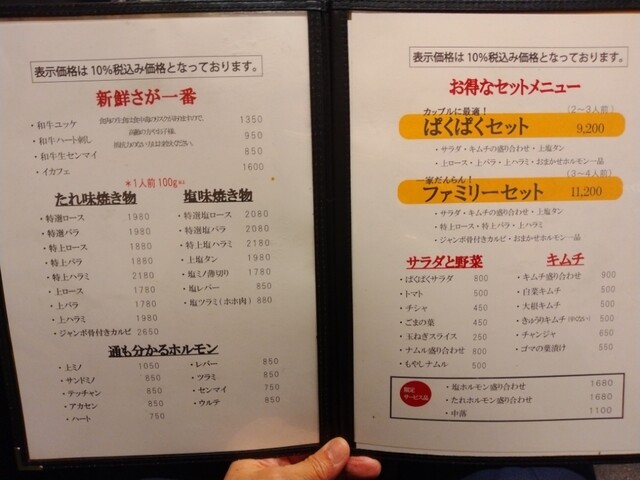 表示価格は10%税込み価格となっております。
新鮮さが一番
・和牛ユッケ 1350
・和牛ハート刺し 950
・和牛生センマイ 850
・イカフェ 1600
*1人前100g
たれ味焼き物
・特選ロース 1980
・特選バラ 1980
・特上ロース 1880
・特上バラ 1880
・特上ハラミ 2180
・上ロース 1780
・上バラ 1780
・上ハラミ 1980
・ジャンボ骨付きカルビ 2650
塩味焼き物
・特選塩ロース 2080
・特選塩バラ 2080
・特上塩ハラミ 2180
・上塩タン 1980
・塩ミノ薄切り 1780
・塩レバー 850
・塩ツラミ(ホホ肉) 880
通も分かるホルモン
・上ミノ 1050
・サンドミノ 850
・テッチャン 850
・アカセン 850
・ハート 750
・レバー 850
・ツラミ 850
・センマイ 750
・ウルテ 850
表示価格は10%税込み価格となっております。
お得なセットメニュー
カップルに最適! (2~3人前)
ぱくぱくセット 9,200
・サラダ・キムチの盛り合わせ・上塩タン
・上ロース・上バラ・上ハラミ・おまかせホルモン一品
一家だんらん! (3~4人前)
ファミリーセット 11,200
・サラダ・キムチの盛り合わせ・上塩タン
・特上ロース・特上バラ・上ハラミ
・ジャンボ骨付きカルビ・おまかせホルモン一品
サラダと野菜
・ぱくぱくサラダ 800
・トマト 500
・チシャ 450
・ごまの葉 450
・玉ねぎスライス 250
・ナムル盛り合わせ 800
・もやしナムル 500
キムチ
・キムチ盛り合わせ 900
・白菜キムチ 500
・大根キムチ 500
・きゅうりキムチ 500
・チャンジャ 650
・ゴマの葉漬け 550
限定
サービス品
・塩ホルモン盛り合わせ 1680
・たれホルモン盛り合わせ 1680
・中落 1100